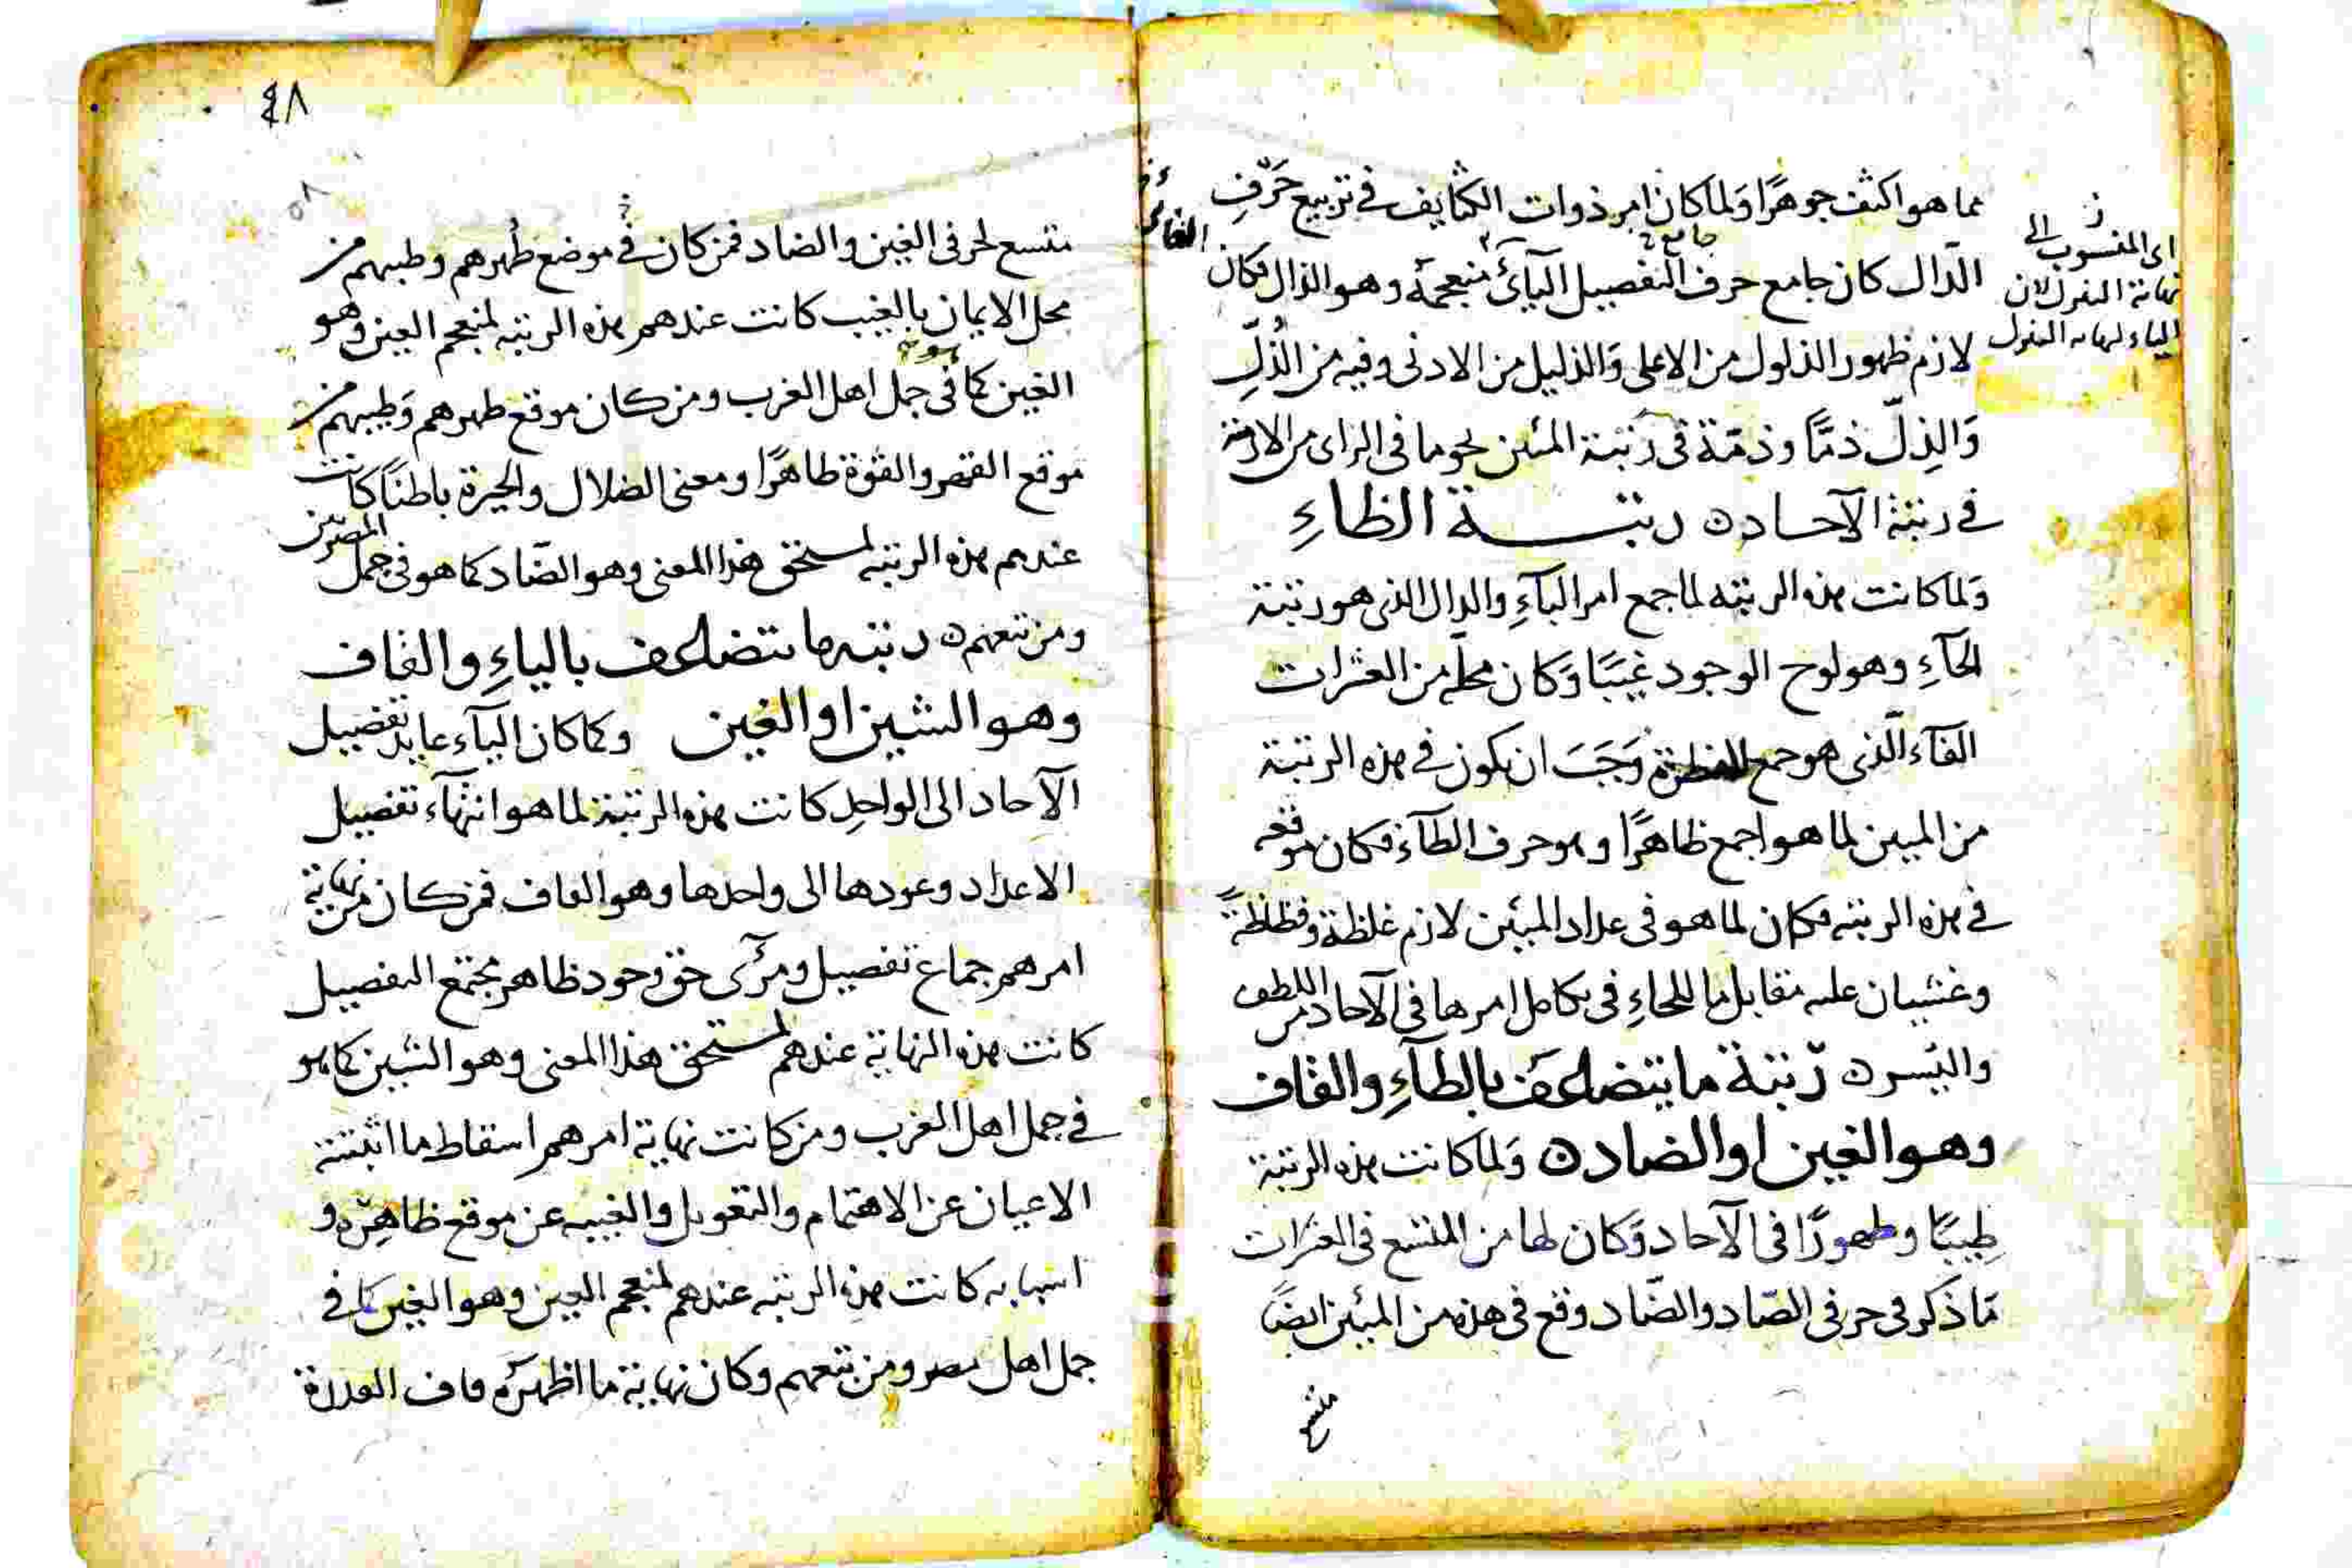 مما هو اكثف جوهرًا وَلما كان امر ذوات الكثايف في تربيع حَرْفِ
الدّال كان جامع حرف التفصيل اليآئ منعجمهُ وهو الذال فكان
لازم ظهور الذلول من الاعلى وَالذليل من الادنى وفيه من الذُلِّ
وَالذِلّ ذمًّا وذمّة في رتبة المئين نحو ما في الزاى من الازمة
في رتبة الآحاد ه رتبة الظاءِ
وَلما كانت هذه الرتبه لما جمع امر البآءِ والدال الذى هو رتبة
الحآءِ وهو لوح الوجود غيبًا وَكان محله من العشرات
الفآء الّذى هو جمع الفطرة وَجَبَ ان يكون في هذه الرتبة
من المئين لما هو اجمع ظاهرًا وهو حرف الظآء فكان موقعه
في هذه الرتبه فكان لما هو في عداد المئين لازم غلظة وفظاظةً
وغشيان عليه مقابل ما للحاءِ في تكامل امرها في الآحاد من اللطف
واليسر ه رتبة ما يتضاعف بالطآءِ والقاف
وهو الغين او الضاد ه وَلما كانت هذه الرتبة
طِيبًا وطهورًا في الآحاد وَكان لها من المتسع في العشرات
مّا ذكر في حرفي الصّاد والضّاد وقع في هذه من المئين ايضًا
متسع
اى المنسوب الى
نهاية النزول لان
الياء نهاية النزول
٤٨
٥٨
متسع لحرفي الغين والضاد فمن كان في موضع طُهرهم وطيبهم من
محل الايمان بالغيب كانت عندهم هذه الرتبه لمنعجم العين وهو
الغين كما في جمل اهل الغرب ومن كان موقع طهرهم وَطيبهم من
موقع القهر والقوة ظاهرًا ومعنى الضلال والحيرة باطنًا كانت
عندهم هذه الرتبه لمستحق هذا المعنى وهو الضّاد كما هو في جمل المصريّين
ومن تبعهم ه رتبه ما يتضاعف بالياءِ والقاف
وهو الشين او الغين وكما كان اليآء عايد تفصيل
الآحاد الى الواحدِ كانت هذه الرتبة لما هو انتهآء تفصيل
الاعداد وعودها الى واحدها وهو القاف فمن كان من نهاية
امرهم جماع تفصيل ومرآى حق وجود ظاهر مجتمع التفصيل
كانت هذه النهاية عندهم لمستحق هذا المعنى وهو الشين كما هو
في جمل اهل الغرب ومن كانت نهاية امرهم اسقاط ما اثبتته
الاعيان عن الاهتمام والتعويل والغيبه عن موقع ظاهره و
اسبابه كانت هذه الرتبه عندهم لمنعجم العين وهو الغين كما في
جمل اهل مصر ومن تبعهم وكان نهاية ما اظهرَه قاف القدرة